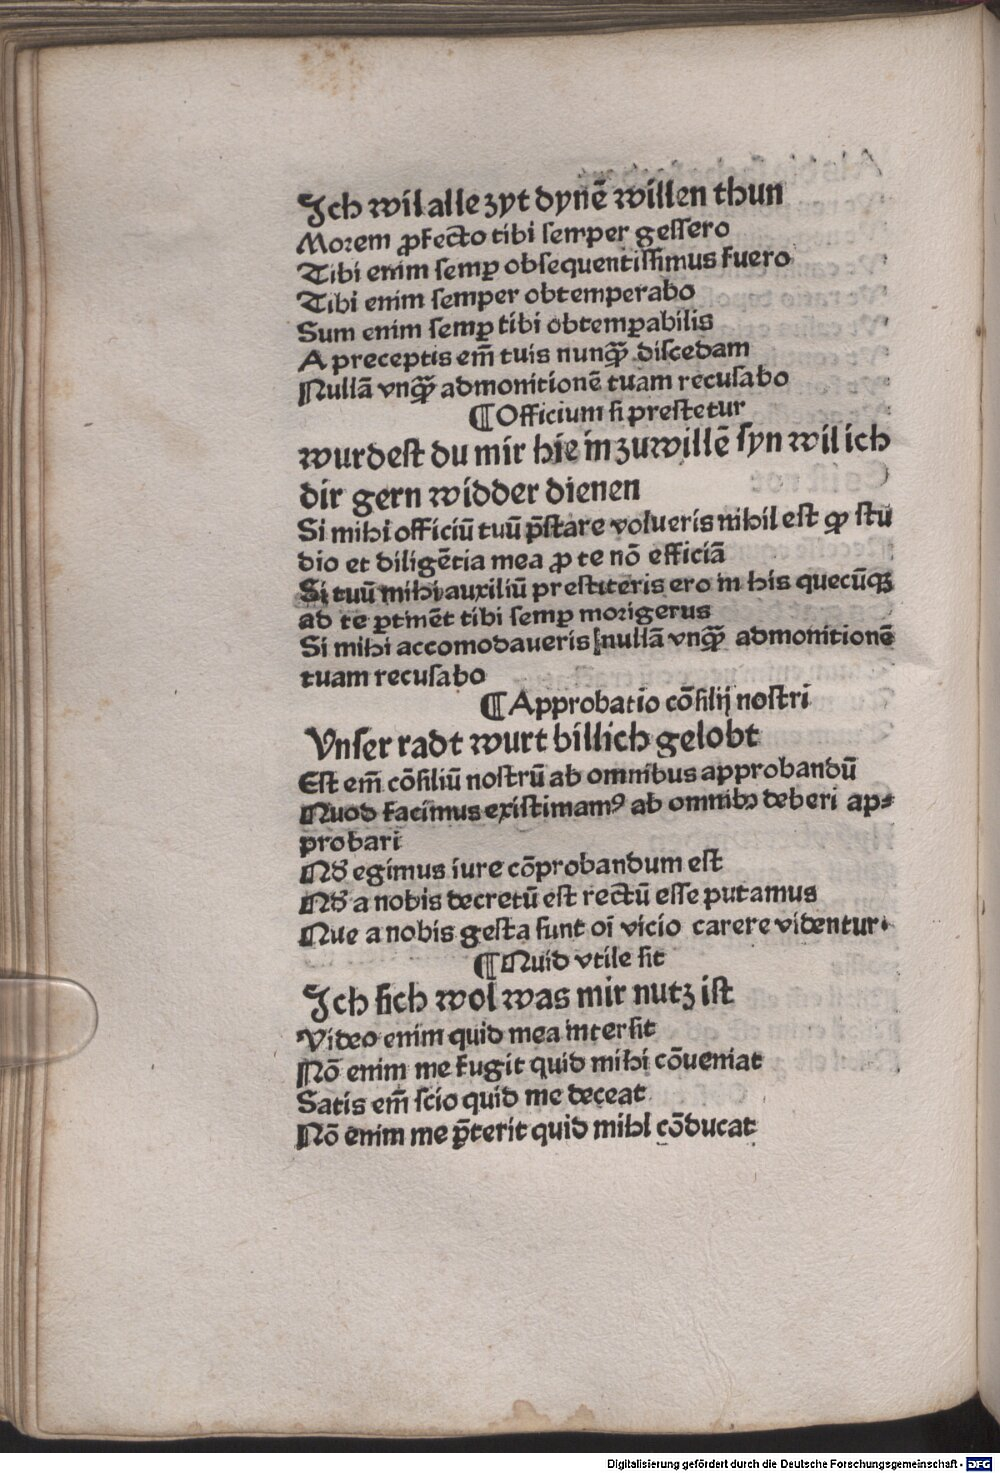 Ich wil alle zyt dynē willen thun
Morem ꝓfecto tibi semper gessero
Tibi enim semꝑ obsequentissimus fuero
Tibi enim semper obtemperabo
Sum enim semꝑ tibi obtemꝑabilis
A preceptis em̄ tuis nunqꝫ̄ discedam
Nullā vnqꝫ̄ admonitionē tuam recusabo
¶ Officium si prestetur
wurdest du mir hie in zuwillē syn wil ich
dir gern widder dienen
Si mihi officiū tuū p̄stare volueris nihil est qꝫ̄ stu
dio et diligētia mea ꝓ te nō efficiā
Si tuū mihi auxiliū prestiteris ero in his quecūqꝫ
ad te ꝑtinēt tibi semꝑ morigerus
Si mihi accomodaueris nullā vnqꝫ̄ admonitionē
tuam recusabo
¶ Approbatio cōsilij nostri
Vnser radt wurt billich gelobt
Est em̄ cōsiliū nostrū ab omnibus approbandū
Quod facimus existimamꝰ ab omnibꝫ deberi ap⸗
probari
Qđ egimus iure cōprobandum est
Qđ a nobis decretū est rectū esse putamus
Que a nobis gesta sunt oī vicio carere videntur.
¶ Quid vtile sit
Ich sich wol was mir nutz ist
Video enim quid mea intersit
Nō enim me fugit quid mihi cōveniat
Satis em̄ scio quid me deceat
Nō enim me p̄terit quid mihi cōducat
Digitalisierung gefördert durch die Deutsche Forschungsgemeinschaft - DFG